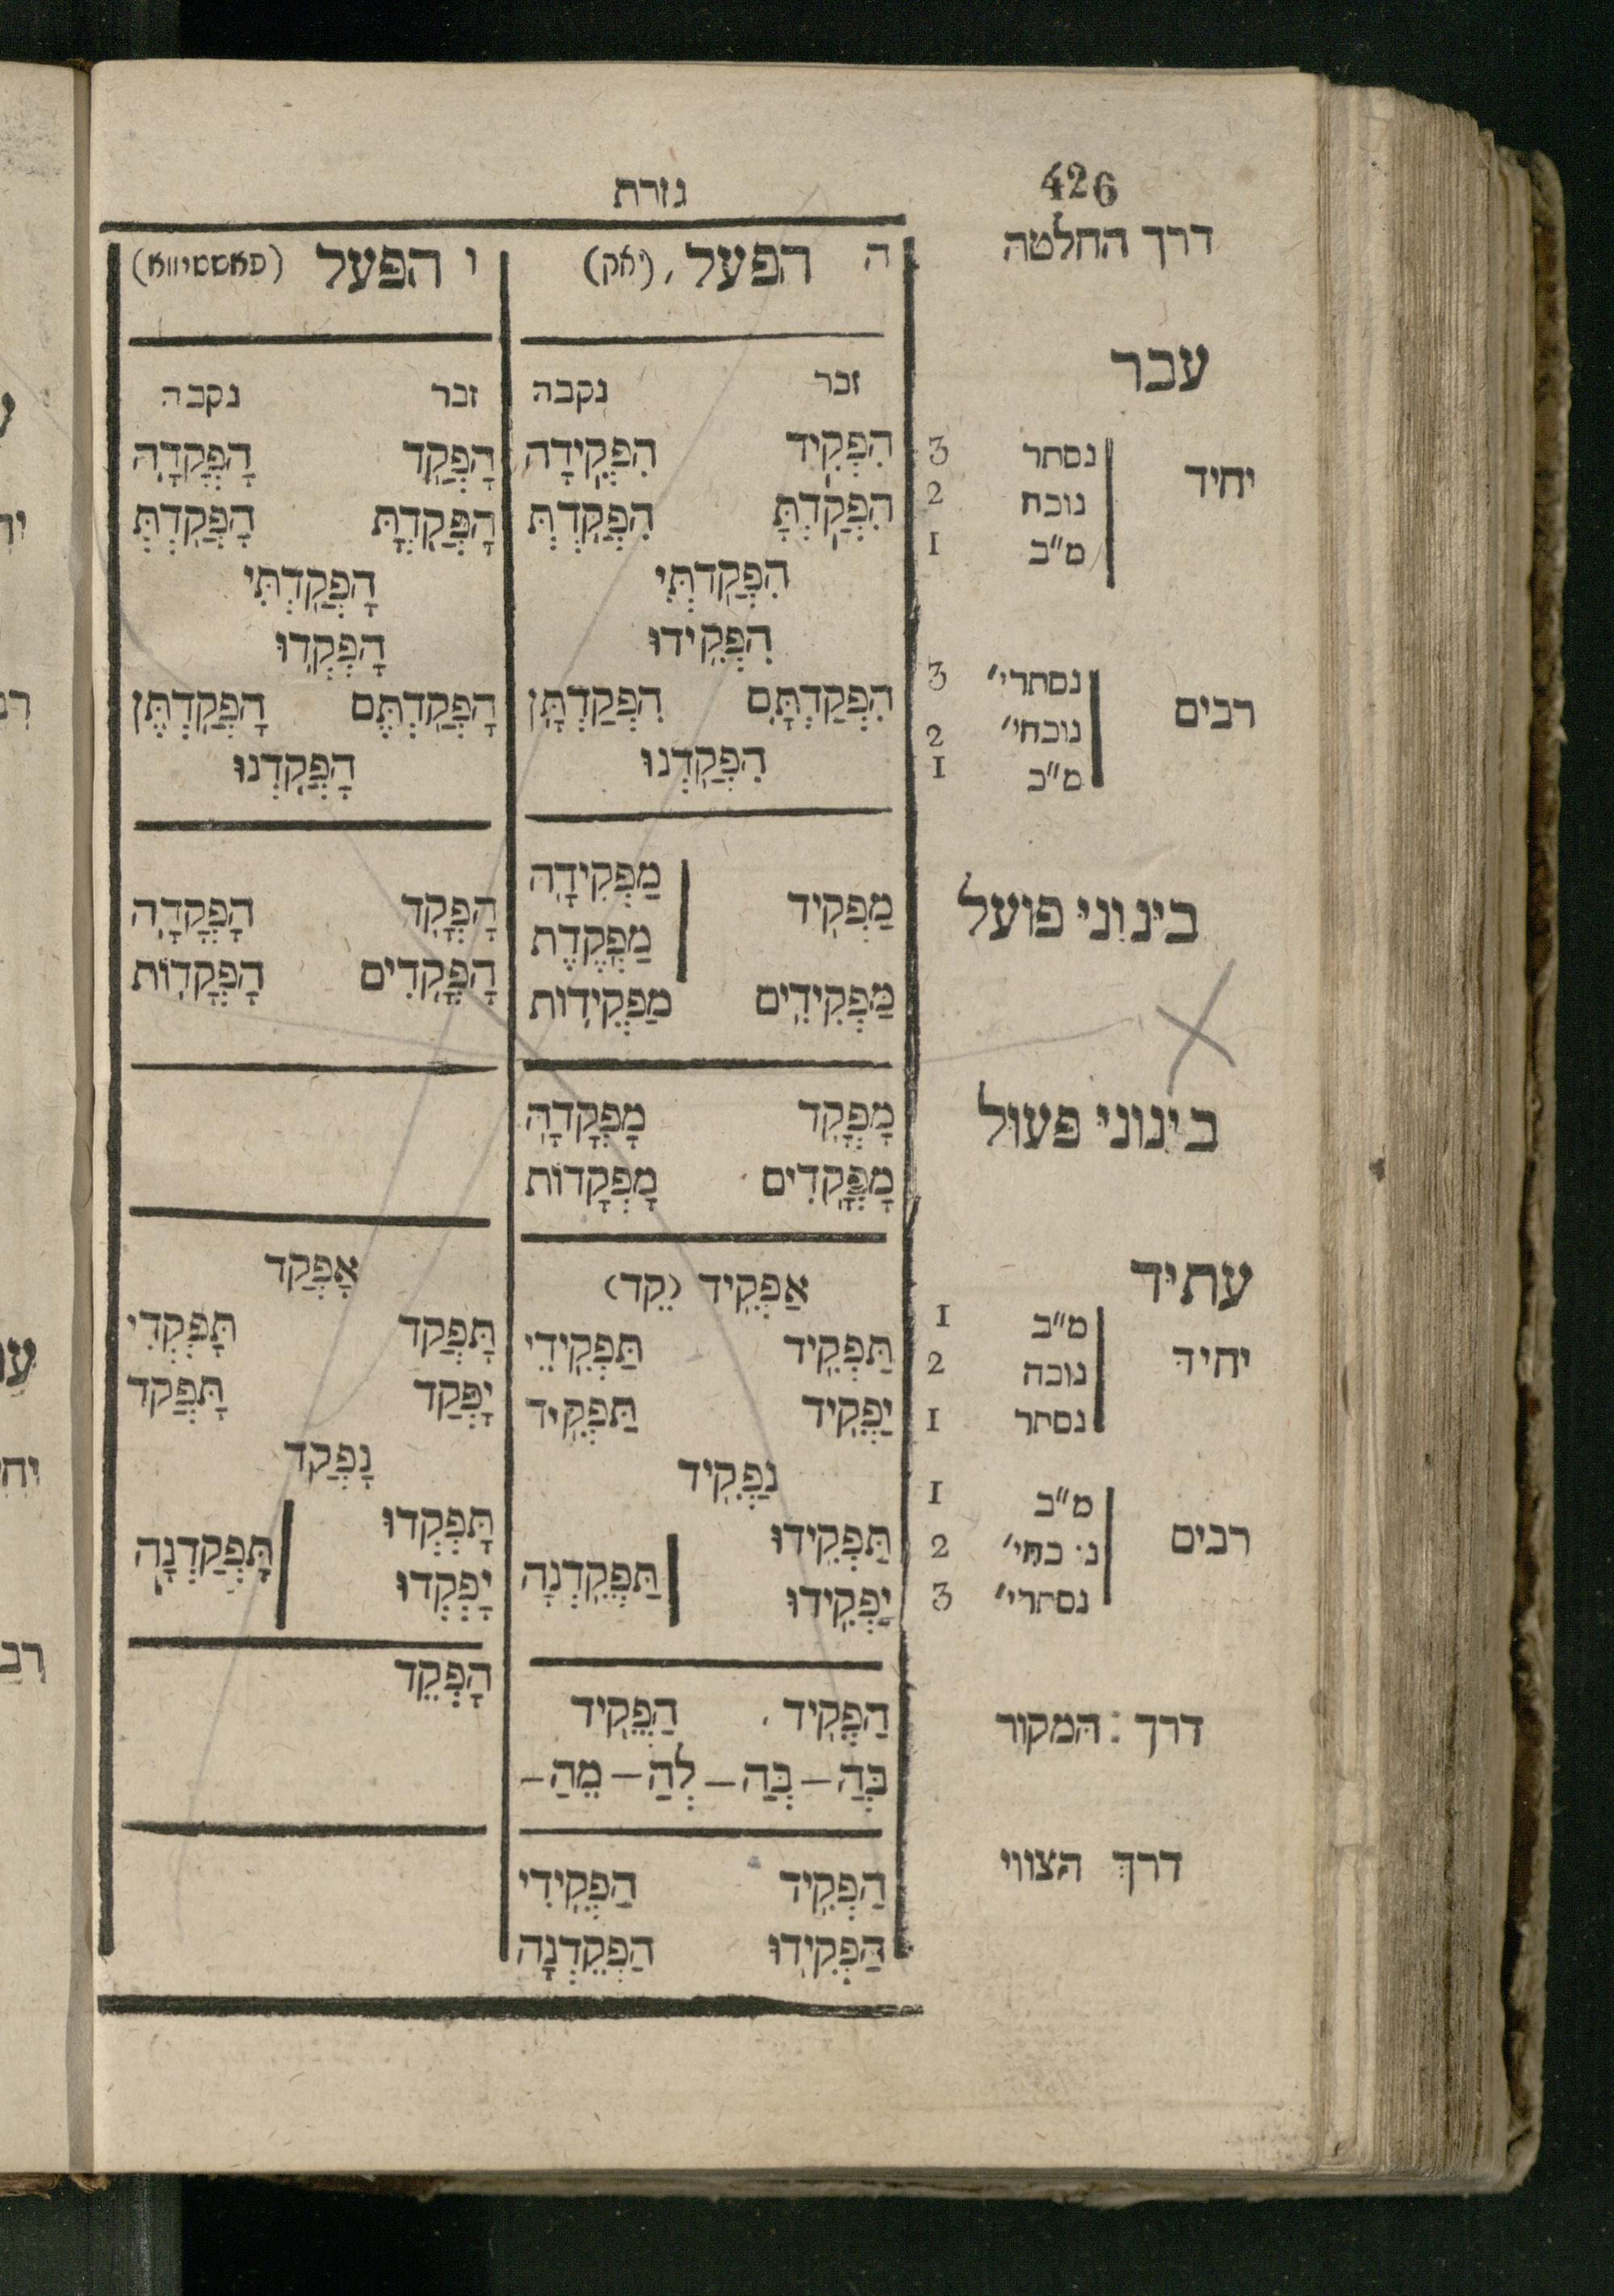 426
גזרת
דרך החלטה
ה הפעל, (אק) ו הפעל (פאססיווא)
עבר
זכר נקבה זכר נקבה
יחיד
נסתר 3 הִפְקִיד הִפְקִידָה הָפְקַד הָפְקָדָה
נוכח 2 הִפְקַדְתָּ הִפְקַדְתְּ הָפְקַדְתָּ הָפְקַדְתְּ
מ״ב 1 הִפְקַדְתִּי הָפְקַדְתִּי
רבים
נסתרי׳ 3 הִפְקִידוּ הָפְקְדוּ
נוכחי׳ 2 הִפְקַדְתָּם הִפְקַדְתָּן הָפְקַדְתֶּם הָפְקַדְתֶּן
מ״ב 1 הִפְקַדְנוּ הָפְקַדְנוּ
בינוני פועל
מַפְקִיד מַפְקִידָה הָפְקָד הָפְקָדָה
מַפְקֶדֶת
מַפְקִידִים מַפְקִידוֹת הָפְקָדִים הָפְקָדוֹת
בינוני פעול
מָפְקָד מָפְקָדָה
מָפְקָדִים מָפְקָדוֹת
עתיד
יחיד
מ״ב 1 אַפְקִיד (קֵד) אָפְקַד
נוכח 2 תַּפְקִיד תַּפְקִידִי תָּפְקַד תָּפְקְדִי
נסתר 1 יַפְקִיד תַּפְקִיד יָפְקַד תָּפְקַד
רבים
מ״ב 1 נַפְקִיד נָפְקַד
נ׳ כחי׳ 2 תַּפְקִידוּ תַּפְקֵדְנָה תָּפְקְדוּ תָּפְקַדְנָה
נסתרי׳ 3 יַפְקִידוּ יָפְקְדוּ
דרך המקור
הַפְקִיד הַפְקִיד הָפְקֵד
בְּהַ – בְּהַ – לְהַ – מֵהַ –
דרך הצווי
הַפְקִיד הַפְקִידִי
הַפְקִידוּ הַפְקֵדְנָה